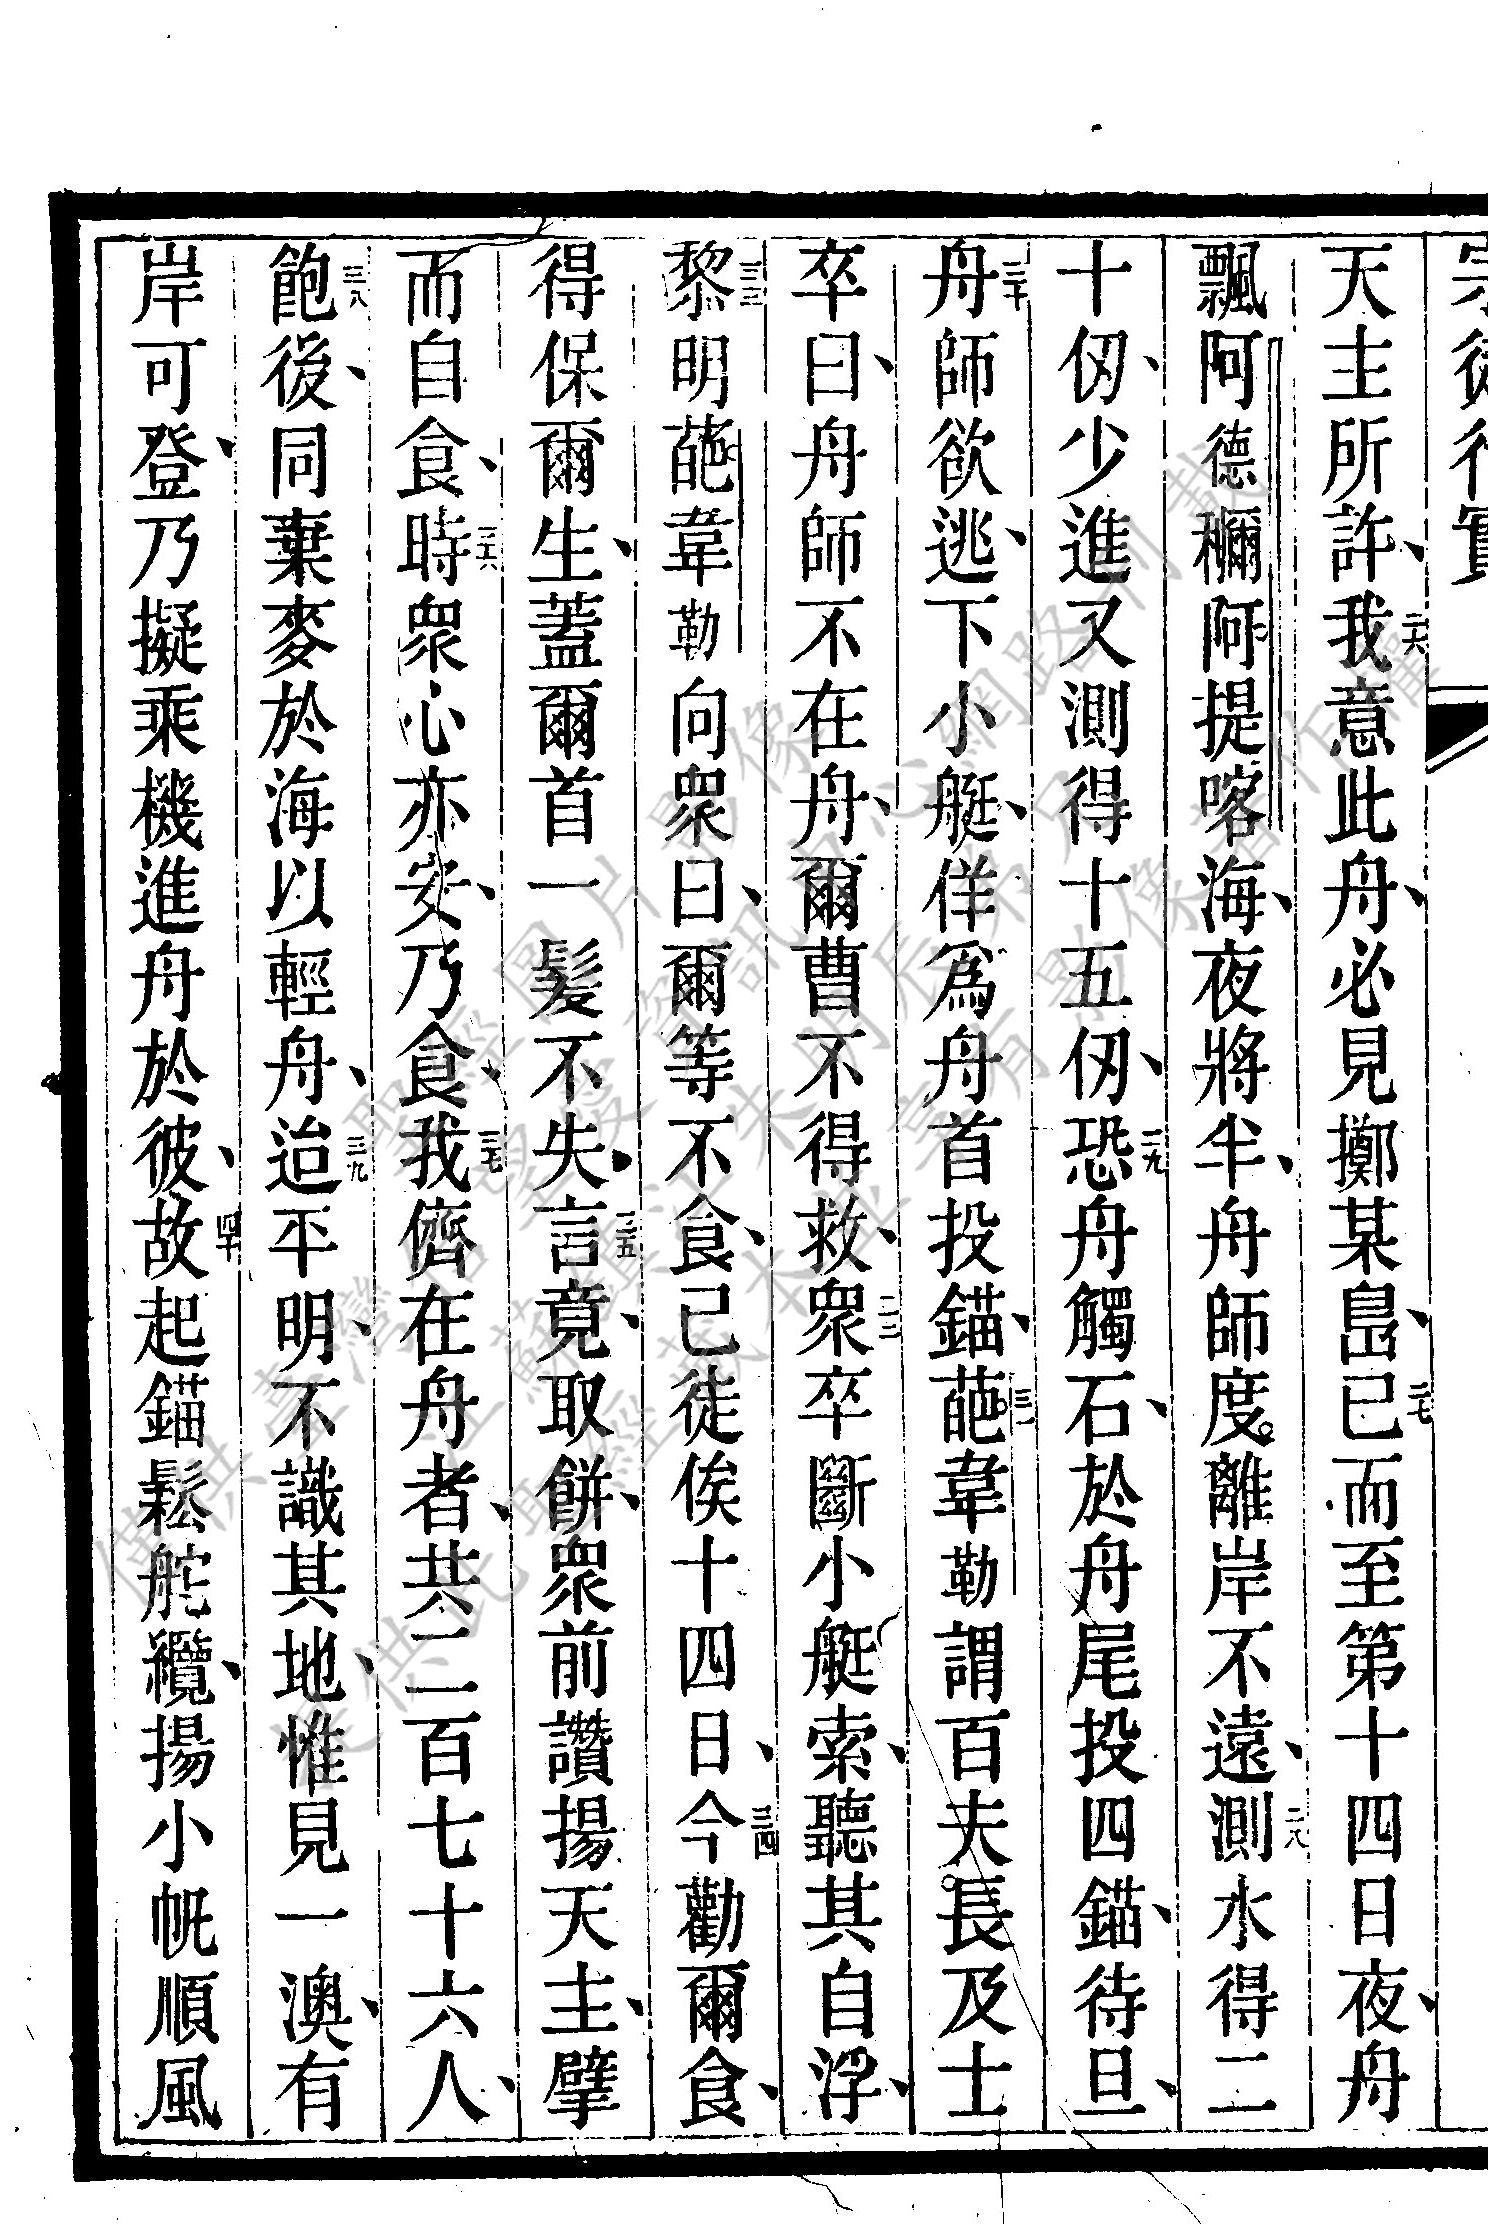 宗徒行實
天主所許、二六我意此舟、必見擲某島、二七已而至第十四日夜、舟
飄阿德彌阿提喀海、夜將半、舟師度。離岸不遠、二八測水得二
十仞、少進又測得十五仞、二九恐舟觸石、於舟尾投四錨、待旦、
三十舟師欲逃、下小艇、佯爲舟首投錨、三一葩韋勒謂百夫長及士
卒曰、舟師不在舟、爾曹不得救、三二衆卒斷小艇索、聽其自浮、
三三黎明葩韋勒向衆曰、爾等不食、己徒俟十四日、三四今勸爾食、
得保爾生、蓋爾首一髮不失、三五言竟、取餅、衆前讚揚天主、擘
而自食、三六時衆心亦安、乃食、三七我儕在舟者、共二百七十六人、
三八飽後、同棄麥於海以輕舟、三九迨平明、不識其地、惟見一澳、有
岸可登、乃擬乘機進舟於彼、四十故起錨鬆舵纜、揚小帆順風